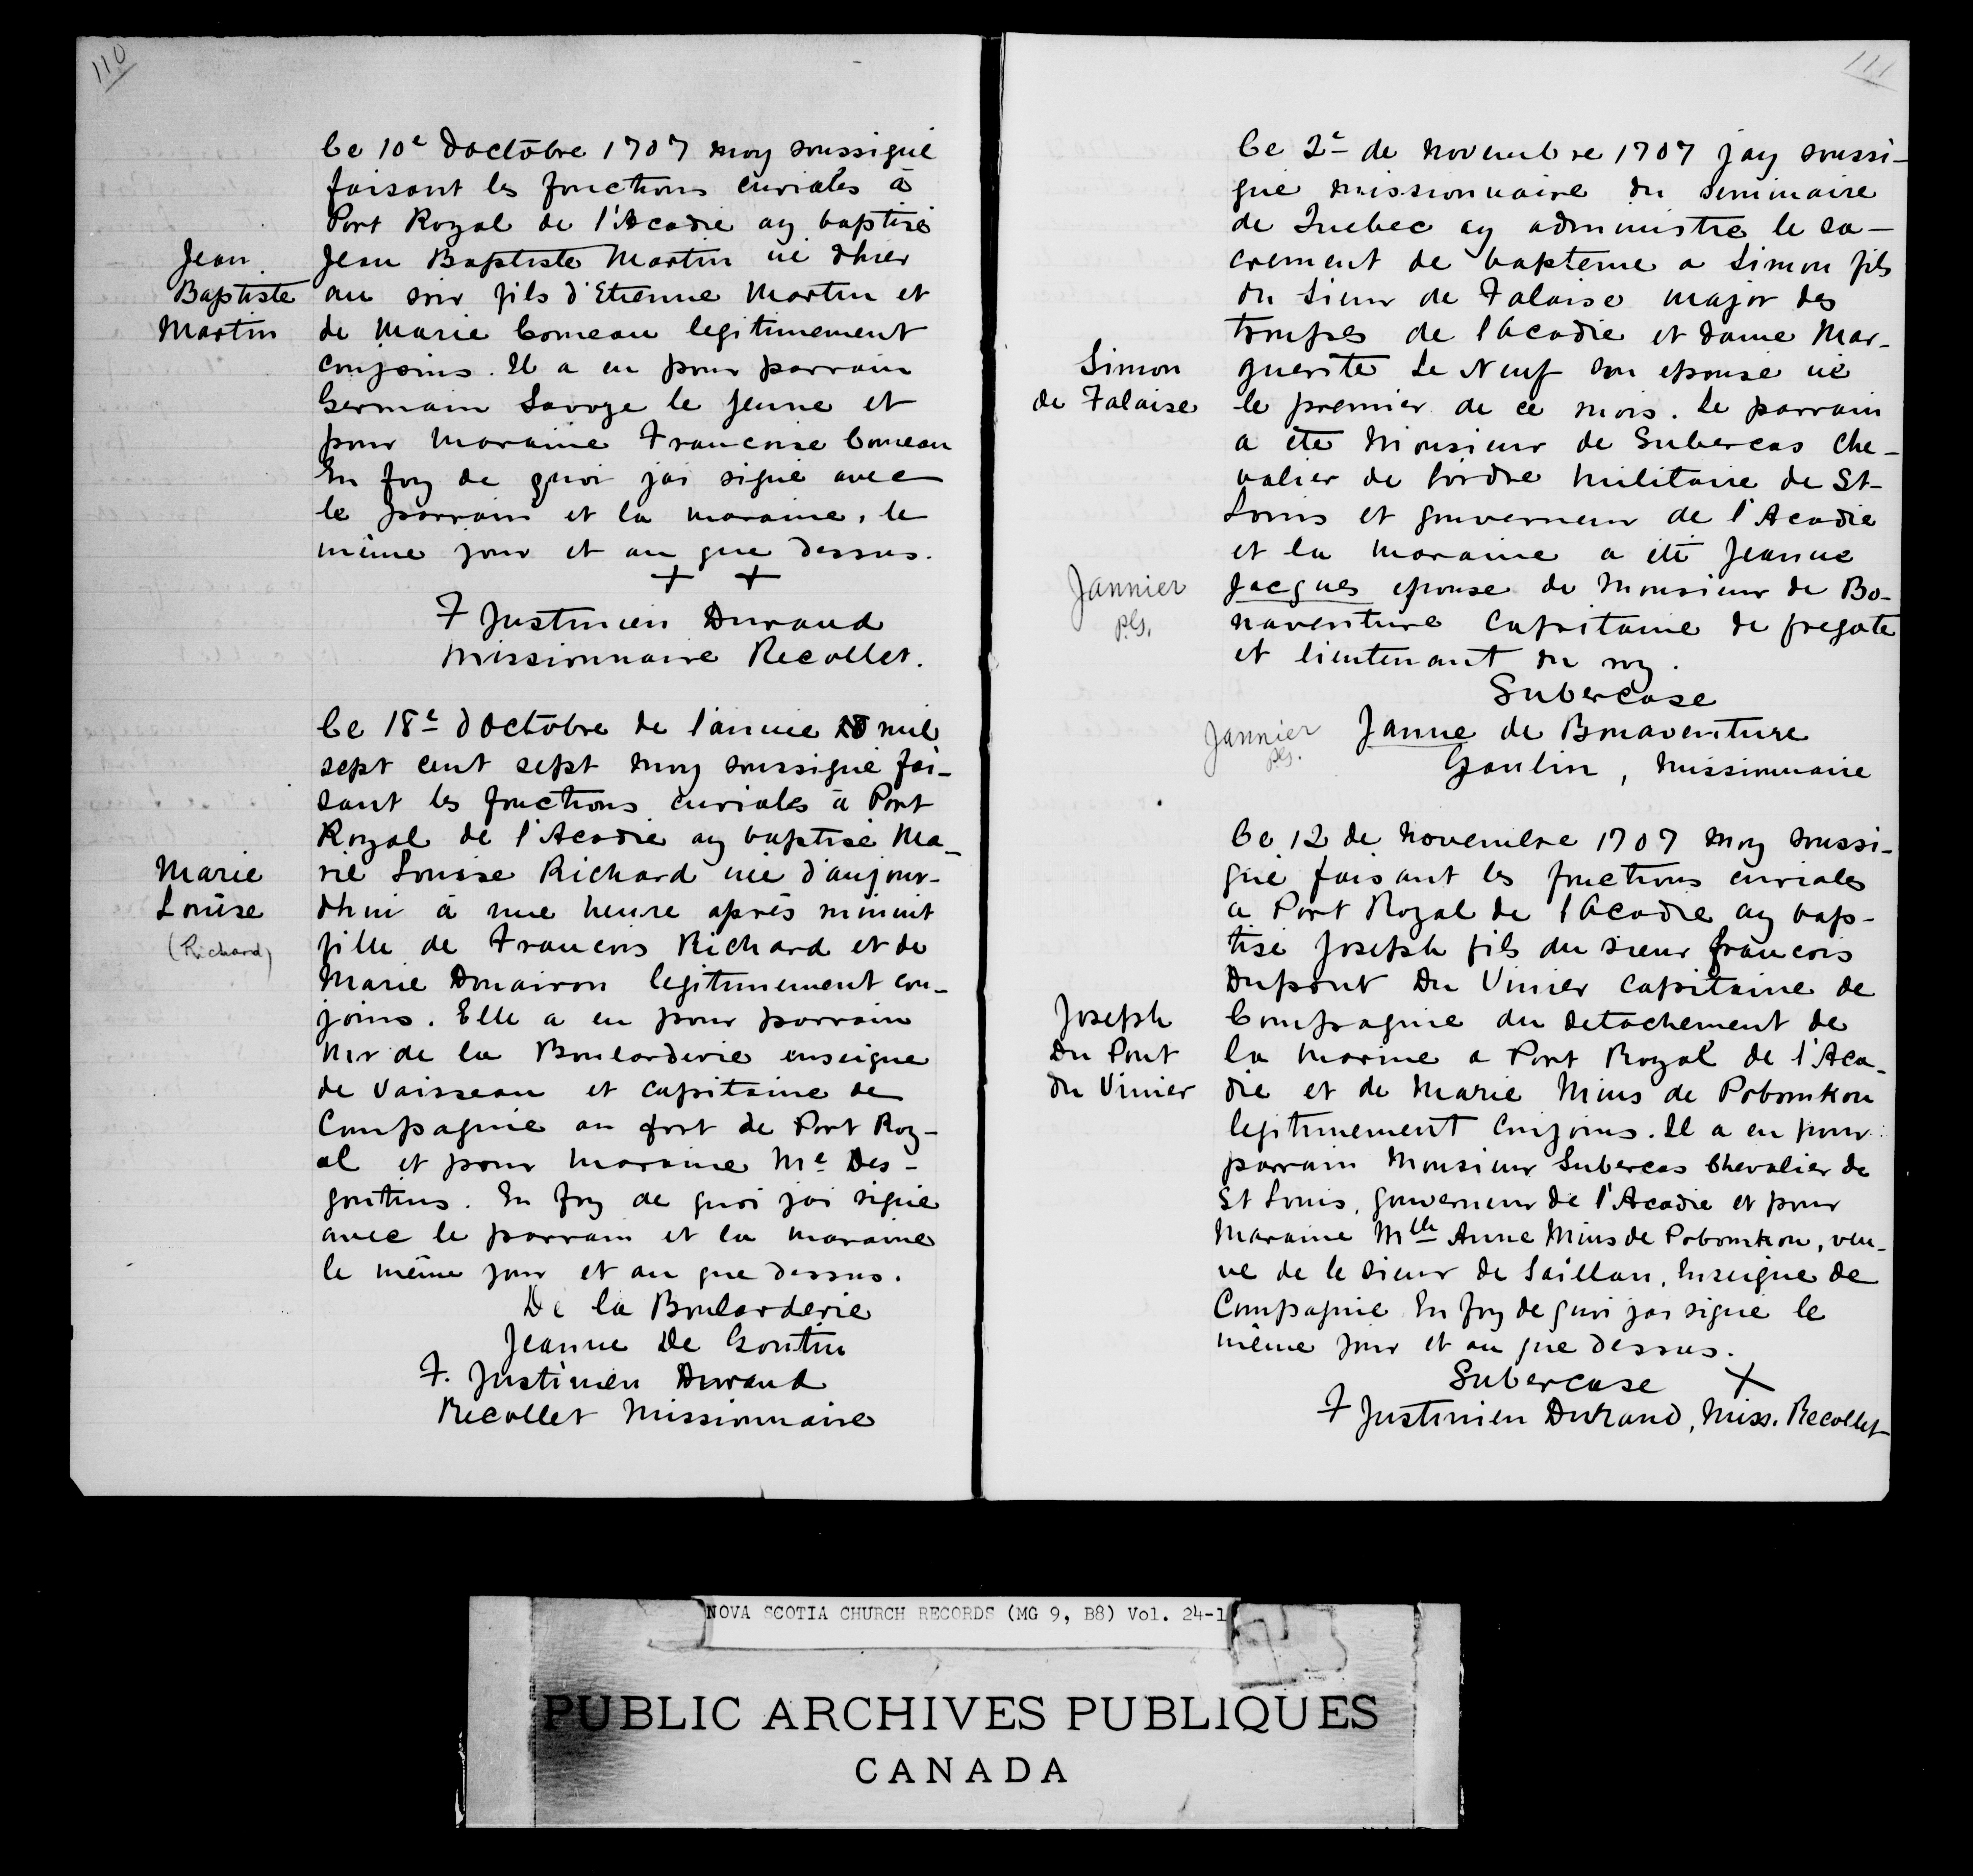 110
Ce 10e doctobre 1707 moy soussigné
faisant les fonctions curiales à
Port Royal de l'Acadie ay baptisé
Jean Baptiste Martin né dhier
au soir fils d'Etienne Martin et
de Marie Comeau legitimement
conjoins. Il a eu pour parrain
Germain Savoye le jeune et
pour maraine Francoise Comeau
En foy de quoi jai signé avec
le parrain et la maraine, le
même jour et an que dessus.
+ +
F Justinien Durand
Missionnaire Recollet.
Jean
Baptiste
Martin
Ce 18e doctobre de l'année mil
sept cent sept moy soussigné fai-
sant les fonctions curiales à Port
Royal de l'Acadie ay baptisé Ma-
rie Louise Richard née d'aujour-
dhui à une heure après minuit
fille de Francois Richard et de
Marie Douairon legitimement con-
joins. Elle a eu pour parrain
Mr de la Boularderie enseigne
de Vaisseau et capitaine de
Compagnie au fort de Port Roy-
al et pour maraine Me Des-
goutins. En foy de quoi jai signé
avec le parrain et la maraine
le même jour et an que dessus.
De la Boularderie
Jeanne De Goutin
F. Justinien Durand
Recollet Missionnaire
Marie
Louise
(Richard)
111
Ce 2e de Novembre 1707 jay soussi-
gné missionnaire du seminaire
de Quebec ay administré le sa-
crement de bapteme a Simon fils
du Sieur de Falaise major des
troupes de lAcadie et dame Mar-
guerite Le Neuf son epouse né
le premier de ce mois. Le parrain
a eté Monsieur de Subercas Che-
valier de lordre Militaire de St-
Louis et gouverneur de l'Acadie
et la maraine a été Jeanne
Jacques epouse de Monsieur de Bo-
naventure Capitaine de fregate
et lieutenant du roy.
Subercase
Janne de Bonaventure
Gaulin, Missionnaire
Simon
de Falaise
Jannier
pls.
Jannier
pls.
Ce 12 de Novembre 1707 moy soussi-
gné faisant les fonctions curiales
a Port Royal de lAcadie ay bap-
tisé Joseph fils du sieur francois
Dupont Du Vinier Capitaine de
Compagnie du detachement de
la marine a Port Royal de l'Aca-
die et de Marie Mius de Pobomkou
legitimement conjoins. Il a eu pour
parrain Monsieur Subercas Chevalier de
St Louis, gouverneur de l'Acadie et pour
Maraine Mlle Anne Mius de Pobomkou, veu-
ve de le Sieur de Saillan, Enseigne de
Compagnie En foy de quoi jai signé le
même jour et an que dessus.
Subercase +
F Justinien Durand, Miss. Recollet
Joseph
Du Pont
du Vinier
NOVA SCOTIA CHURCH RECORDS (MG 9, B8) Vol. 24-1
PUBLIC ARCHIVES PUBLIQUES
CANADA